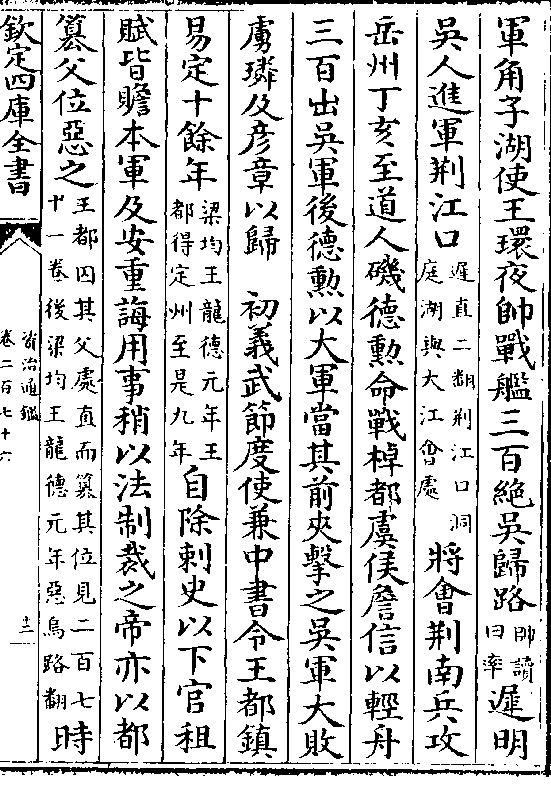 軍角子湖使王環夜帥戰艦三百絶吳歸路帥讀曰率遲明
吳人進軍荆江口遲直二翻荆江口洞庭湖與大江會處將會荆南兵攻
岳州丁亥至道人磯德勲命戰棹都虞候詹信以輕舟
三百出吳軍後德勲以大軍當其前夾擊之吳軍大敗
虜璘及彦章以歸　初義武節度使兼中書令王都鎮
易定十餘年梁均王龍德元年王都得定州至是九年自除刺史以下官租
賦皆贍本軍及安重誨用事稍以法制裁之帝亦以都
簒父位惡之王都囚其父處直而簒其位見二百七十一卷後梁均王龍德元年惡烏路翻時
欽定四庫全書
資治通鑑
卷二百七十六
十二